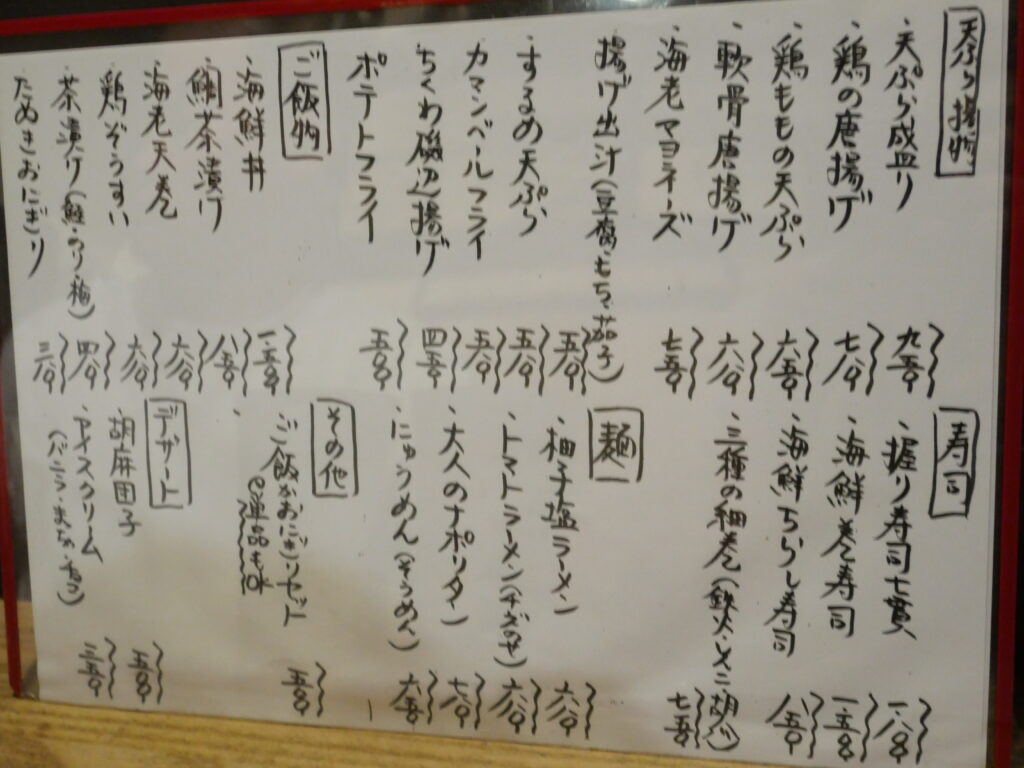 天ぷら揚物
・天ぷら盛り 九五〇
・鶏の唐揚げ 七八〇
・鶏ももの天ぷら 六五〇
・軟骨唐揚げ 六八〇
・海老マヨネーズ 七五〇
・揚げ出汁(豆腐・もち・茄子) 五八〇
・するめ天ぷら 五八〇
・カマンベールフライ 五八〇
・ちくわ磯辺揚げ 四五〇
・ポテトフライ
ご飯物
・海鮮丼
・鯛茶漬け 八五〇
・海老天巻 六八〇
・鶏ぞうすい 六八〇
・茶漬け(鮭・のり・梅) 四八〇
・たぬきおにぎり 三八〇
寿司
・握り寿司七貫
・海鮮巻寿司
・海鮮ちらし寿司
・三種の細巻 七五〇
麺
・柚子塩ラーメン 六八〇
・トマトラーメン(チーズのせ) 六八〇
・大人のナポリタン 七八〇
・にゅうめん(そうめん) 六五〇
その他
・ご飯かおにぎりセット
@単品もOK
デザート
・胡麻団子
・アイスクリーム 三五〇
(バニラ・まっちゃ・チョコ)